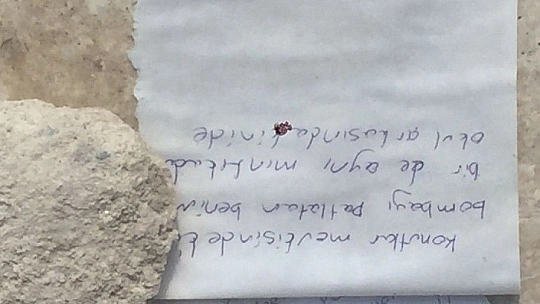 Konutkur mevkisinde
bombayı Patlatan benim
bir de aynı mıntıkada
okul arkasındakinide